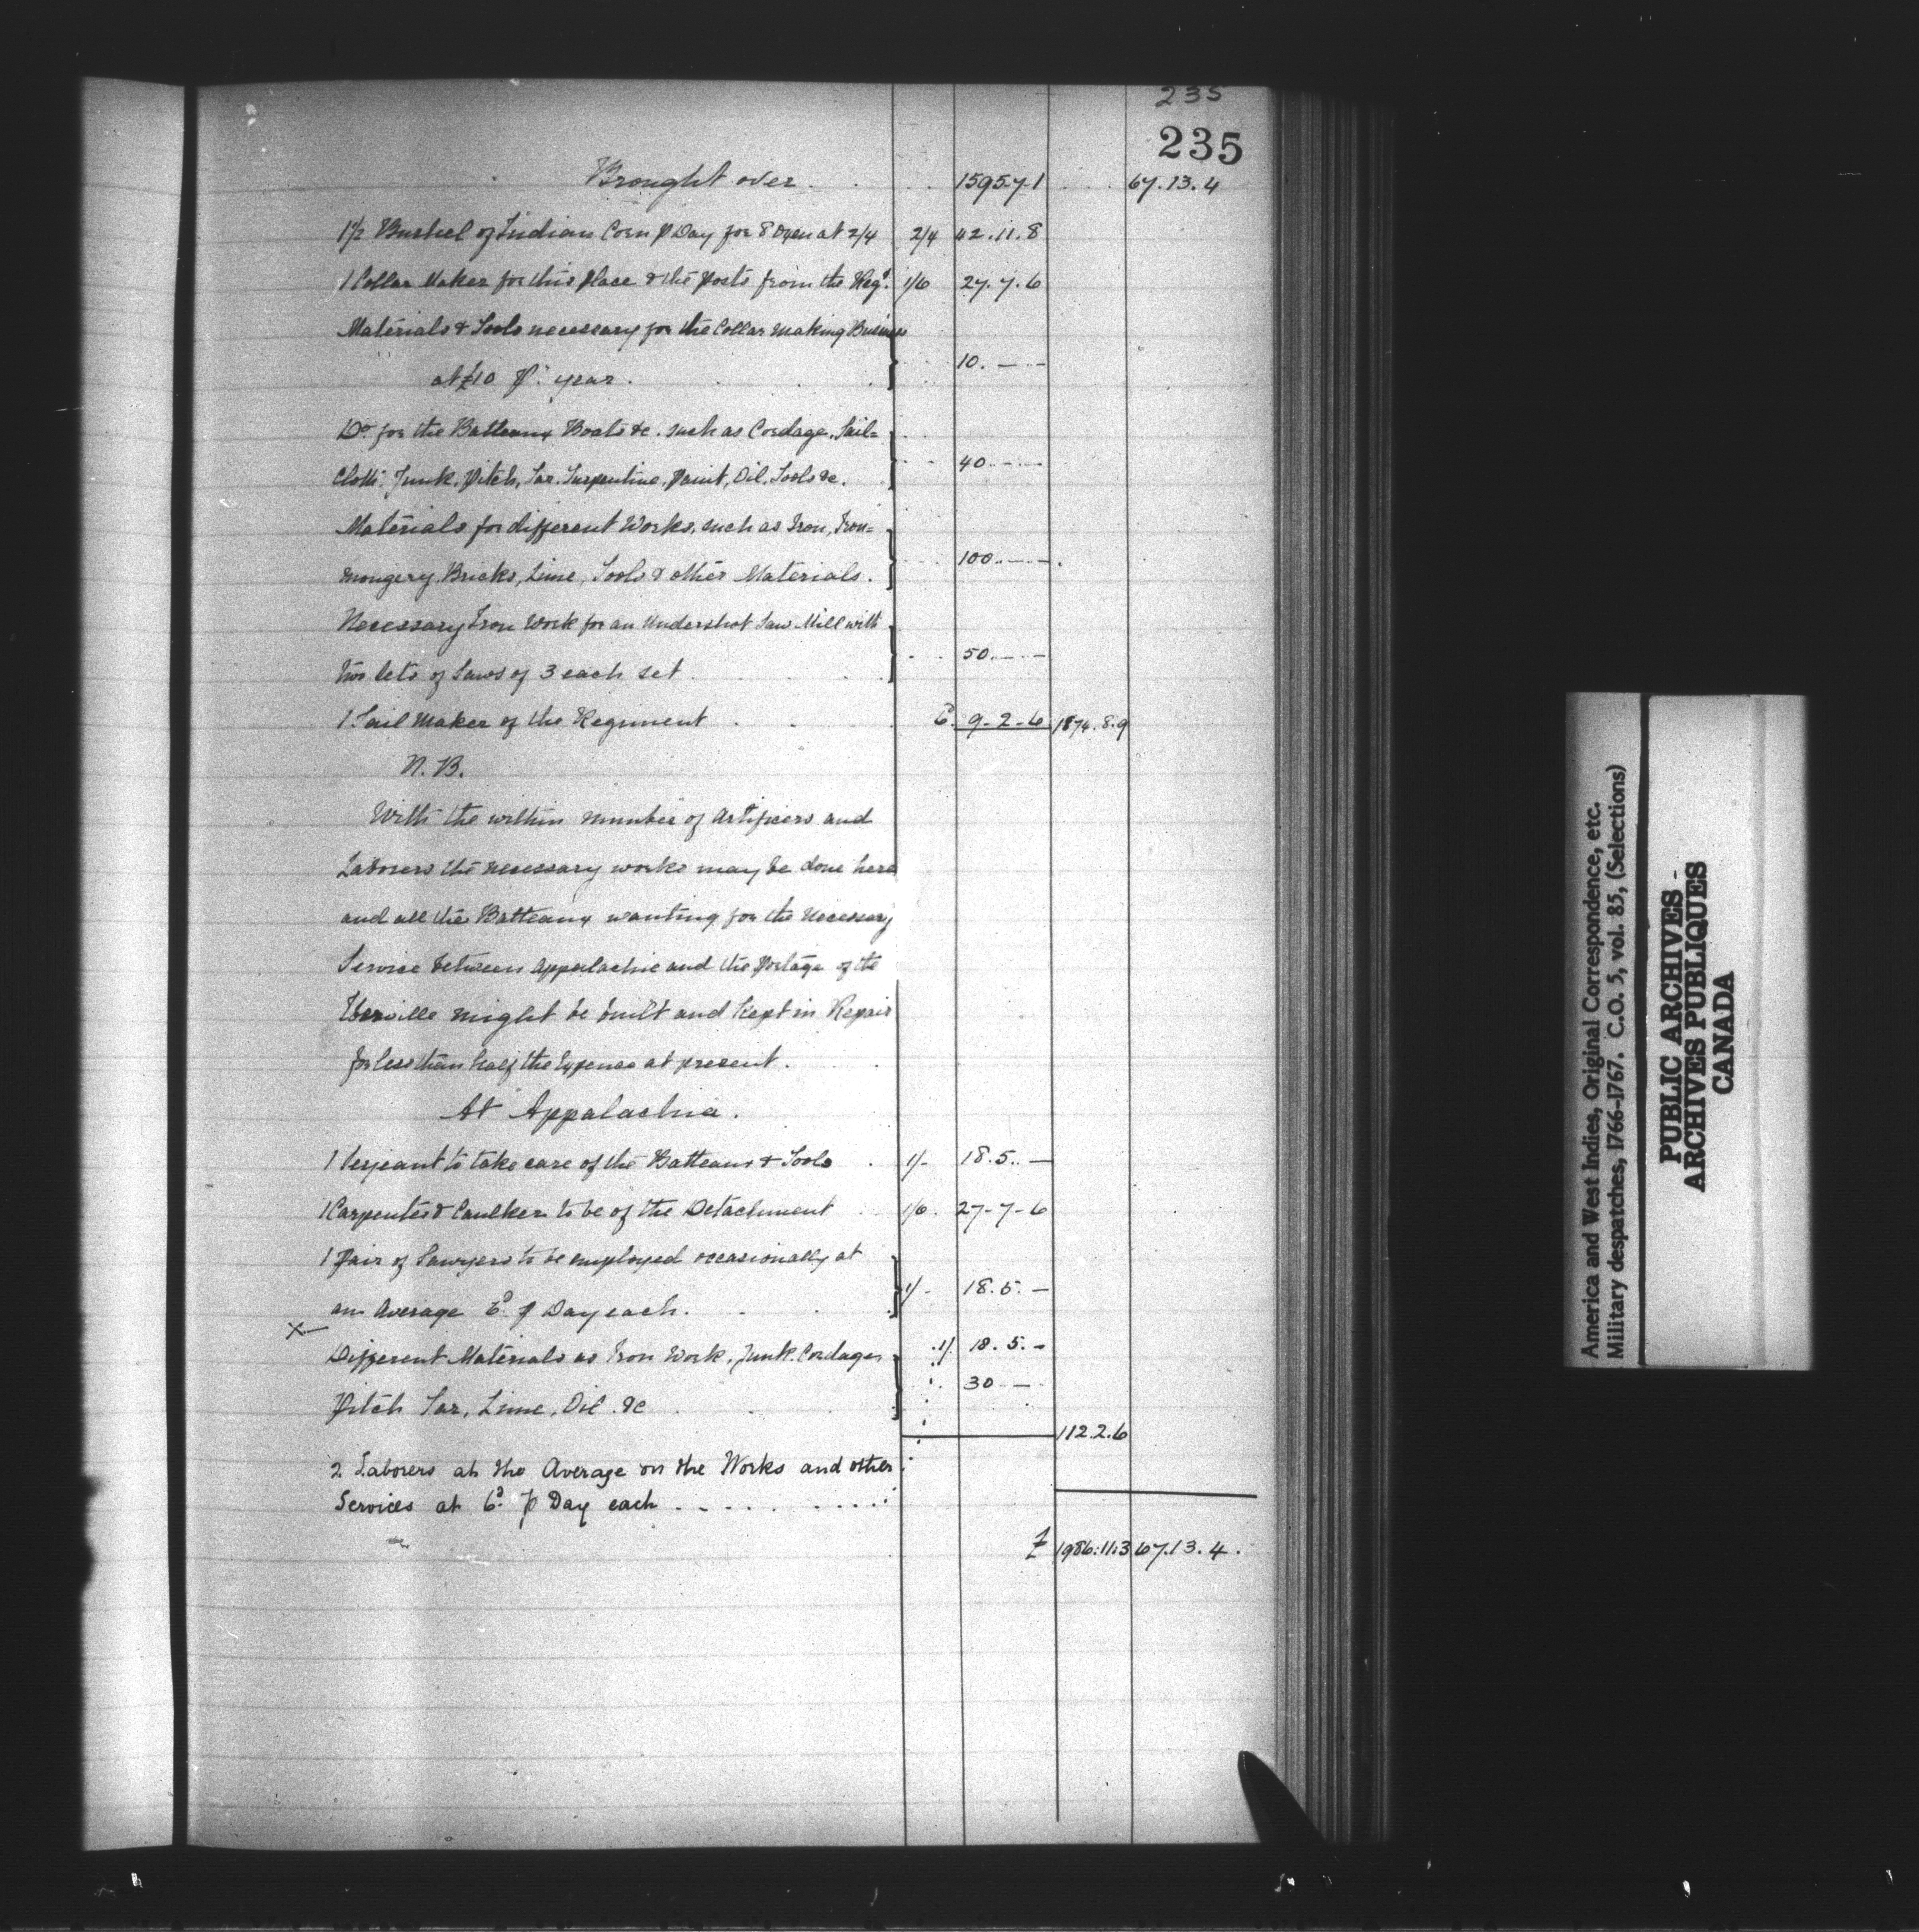 235
235
Brought over . . . . 1595.7.1 . . . 67.13.4
1½ Bushel of Indian Corn ⅌ Day for 8 Oxen at 2/4 2/4 42.11.8
1 Collar Maker for this Place & the Posts from the Regt. 1/6 27.7.6
Materials & Tools necessary for the Collar making Business
at £10 ⅌ year. . . . 10. — -
Do for the Batteaux Boats &c. such as Cordage, Sail=
Cloth, Junk, Pitch, Tar, Turpentine, Paint, Oil, Tools &c. 40. — -
Materials for different Works, such as Iron, Iron=
mongery, Bricks, Lime, Tools & other Materials. 100. — -
Necessary Iron Work for an Undershot Saw Mill with
two sets of Saws of 3 each set . . . 50. — -
1 Sail Maker of the Regiment . . . 6d. 9-2-6 1874.8.9
N.B.
With the within number of Artificers and
Laborers the necessary works may be done here
and all the Batteaux wanting for the necessary
Service between Appalachie and the Portage of the
Iberville might be built and Kept in Repair
for less than half the Expence at present.
At Appalachia.
1 Serjeant to take care of the Batteaux & Tools . 1/- 18.5. —
1 Carpenter & Caulker to be of the Detachment . . 1/6. 27-7-6
1 Pair of Sawyers to be employed occasionally at
an Average 6d. ⅌ Day each. . . 1/- 18.5. —
X
Different Materials as Iron Work, Junk, Cordage, 1/. 18.5. -
Pitch Tar, Lime, Oil &c . . . 30 — -
112.2.6
2 Laborers at the Average on the Works and other
Services at 6d. ⅌ Day each . . . . . . . .
£ 1986:11:3 67.13.4.
America and West Indies, Original Correspondence, etc.
Military despatches, 1766-1767. C.O. 5, vol. 85, (Selections)
PUBLIC ARCHIVES -
ARCHIVES PUBLIQUES
CANADA